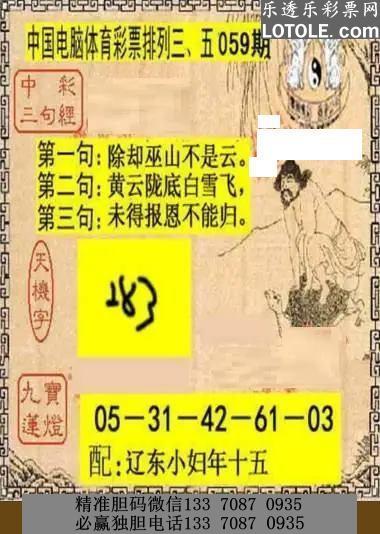 乐透乐彩票网
LOTOLE.COM
中国电脑体育彩票排列三、五059期
中彩
三句經
第一句:除却巫山不是云。
第二句:黄云陇底白雪飞,
第三句:未得报恩不能归。
天機字
九寶
蓮燈
05-31-42-61-03
配:辽东小妇年十五
精准胆码微信133 7087 0935
必赢独胆电话133 7087 0935